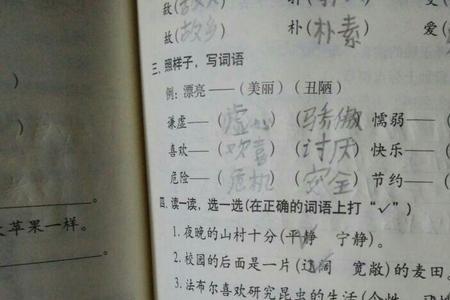 故(故乡) 朴(朴素) 爱(
三、照样子,写词语
例:漂亮——(美丽)(丑陋)
谦虚——(虚心)(骄傲) 懦弱——(
喜欢——(欢喜)(讨厌) 快乐——(
危险——(危机)(安全) 节约——(
四、读一读,选一选(在正确的词语上打“✓”)
苹果一样。
1.夜晚的山村十分(平静 宁静)。
2.校园的后面是一片(辽阔 宽敞)的麦田。
3.法布尔喜欢研究昆虫的生活(个性